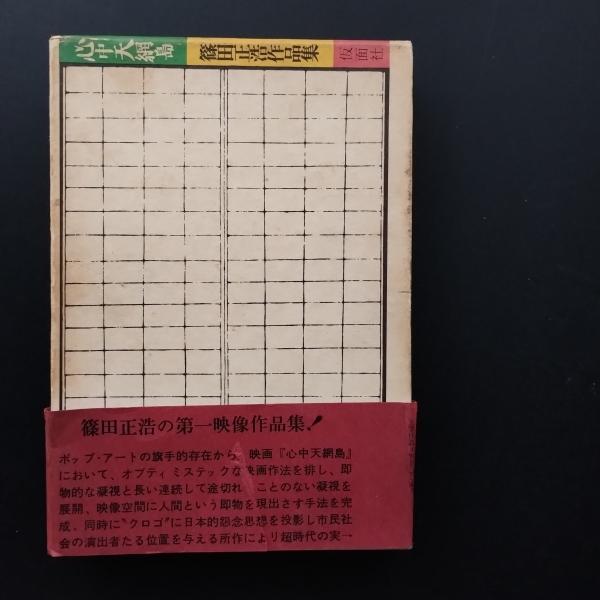 心中天網島 篠田正浩作品集 仮面社
篠田正浩の第一映像作品集!
ポップ・アートの旗手的存在から、映画『心中天網島』
において、オプティミステックな映画作法を排し、即
物的な凝視と長い連続して途切れ ことのない凝視を
展開、映像空間に人間という即物を現出さす手法を完
成、同時に〝クロゴ〟に日本的怨念思想を投影し市民社
会の演出者たる位置を与える所作により超時代の実→